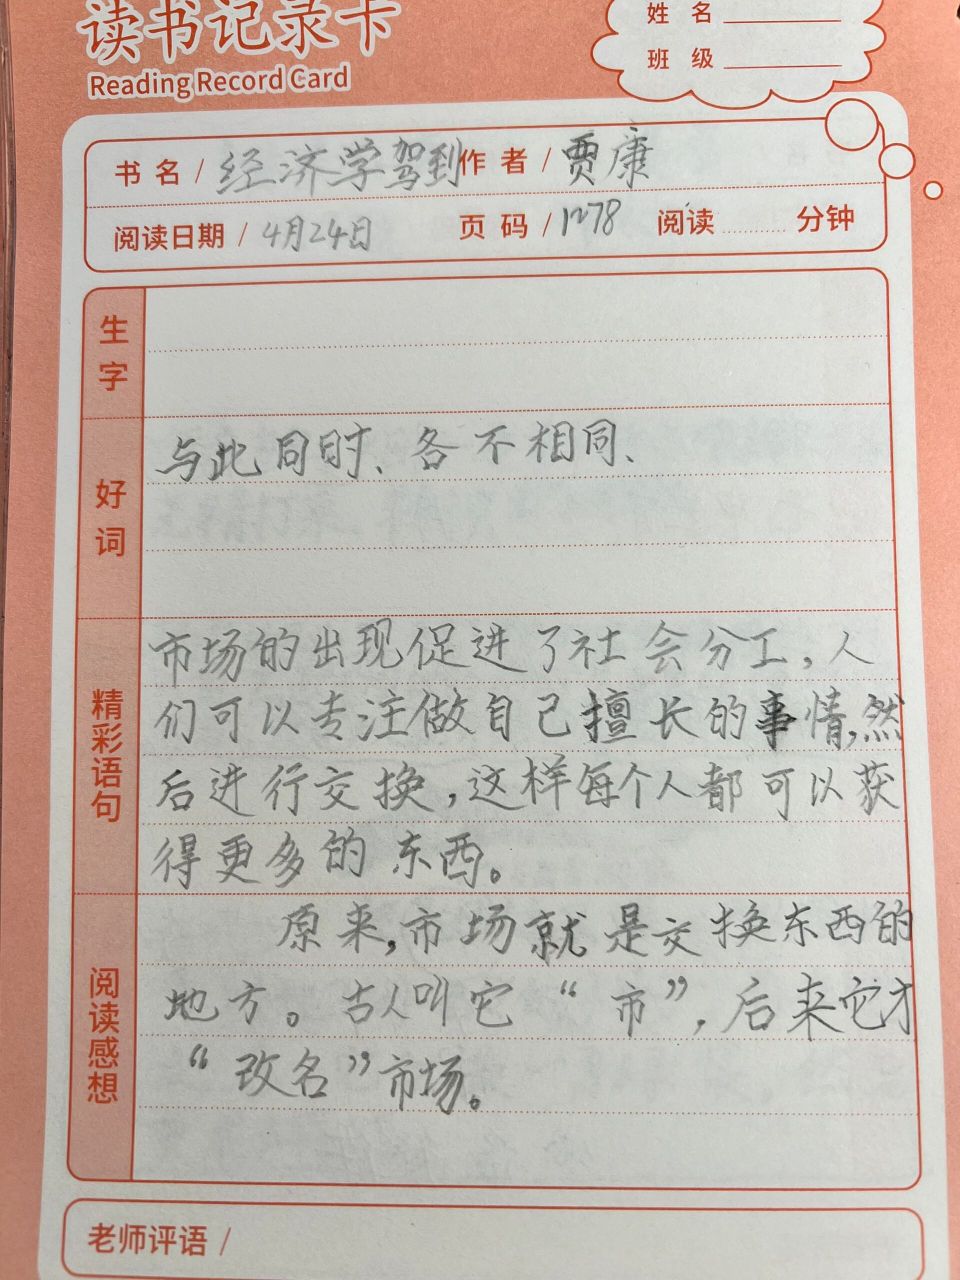 读书记录卡
Reading Record Card
姓名
班级
书名/经济学驾到 作者/贾康
阅读日期/4月24日 页码/1~78 阅读 分钟
生字
好词
与此同时、各不相同、
精彩语句
市场的出现促进了社会分工，人
们可以专注做自己擅长的事情，然
后进行交换，这样每个人都可以获
得更多的东西。
阅读感想
原来，市场就是交换东西的
地方。古人叫它“市”，后来它才
“改名”市场。
老师评语/